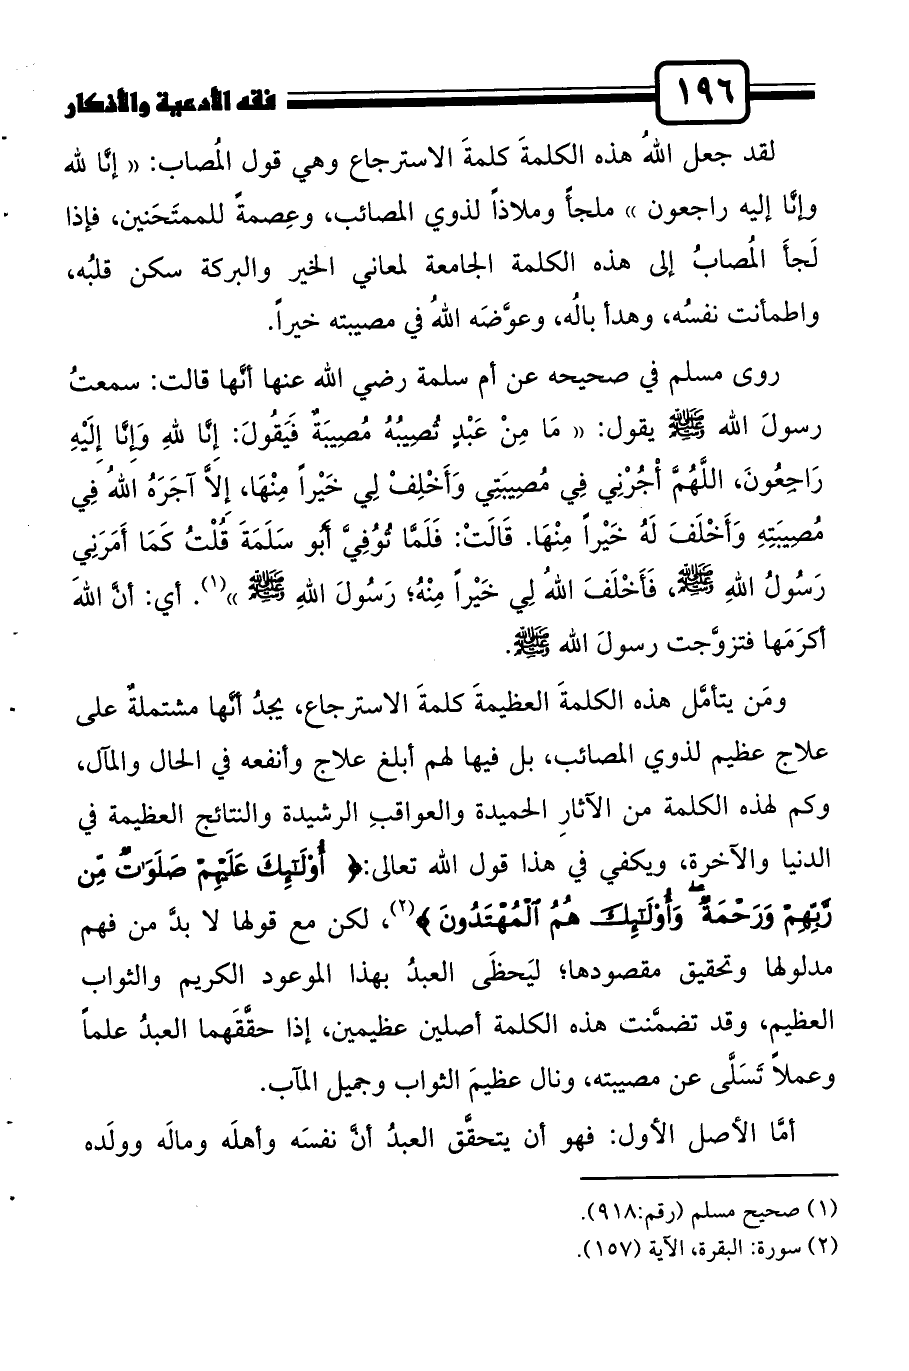 ١٩٦ فقه الأدعية والأذكار
لقد جعل اللهُ هذه الكلمةَ كلمةَ الاسترجاع وهي قول المُصاب: « إنَّا لله
وإنَّا إليه راجعون » ملجأً وملاذاً لذوي المصائب، وعِصمةً للممتَحَنين، فإذا
لَجأَ المُصابُ إلى هذه الكلمة الجامعة لمعاني الخير والبركة سكن قلبُه،
واطمأنت نفسُه، وهدأ بالُه، وعوَّضَه اللهُ في مصيبته خيراً.
روى مسلم في صحيحه عن أم سلمة رضي الله عنها أنَّها قالت: سمعتُ
رسولَ الله ﷺ يقول: « مَا مِنْ عَبْدٍ تُصِيبُهُ مُصِيبَةٌ فَيَقُولَ: إِنَّا للهِ وَإِنَّا إِلَيْهِ
رَاجِعُونَ، اللَّهُمَّ أْجُرْنِي فِي مُصِيبَتِي وَأَخْلِفْ لِي خَيْراً مِنْهَا، إِلاَّ آجَرَهُ اللهُ فِي
مُصِيبَتِهِ وَأَخْلَفَ لَهُ خَيْراً مِنْهَا. قَالَتْ: فَلَمَّا تُوُفِّيَ أَبُو سَلَمَةَ قُلْتُ كَمَا أَمَرَنِي
رَسُولُ اللهِ ﷺ، فَأَخْلَفَ اللهُ لِي خَيْراً مِنْهُ؛ رَسُولَ اللهِ ﷺ »(١). أي: أنَّ اللهَ
أكرَمَها فتزوَّجت رسولَ الله ﷺ.
ومَن يتأمَّل هذه الكلمةَ العظيمةَ كلمةَ الاسترجاع، يجدُ أنَّها مشتملةٌ على
علاج عظيم لذوي المصائب، بل فيها لهم أبلغ علاج وأنفعه في الحال والمآل،
وكم لهذه الكلمة من الآثارِ الحميدة والعواقبِ الرشيدة والنتائج العظيمة في
الدنيا والآخرة، ويكفي في هذا قول الله تعالى:﴿ أُوْلَٰٓئِكَ عَلَيْهِمْ صَلَوَٰتٌ مِّن
رَّبِّهِمْ وَرَحْمَةٌ ۖ وَأُوْلَٰٓئِكَ هُمُ ٱلْمُهْتَدُونَ ﴾(٢)، لكن مع قولها لا بدَّ من فهم
مدلولها وتحقيق مقصودها؛ ليَحظَى العبدُ بهذا الموعود الكريم والثواب
العظيم، وقد تضمَّنت هذه الكلمة أصلين عظيمين، إذا حقَّقَهما العبدُ علماً
وعملاً تَسَلَّى عن مصيبته، ونال عظيمَ الثواب وجميل المآب.
أمَّا الأصل الأول: فهو أن يتحقَّق العبدُ أنَّ نفسَه وأهلَه ومالَه وولَده
(١) صحيح مسلم (رقم:٩١٨).
(٢) سورة: البقرة، الآية (١٥٧).